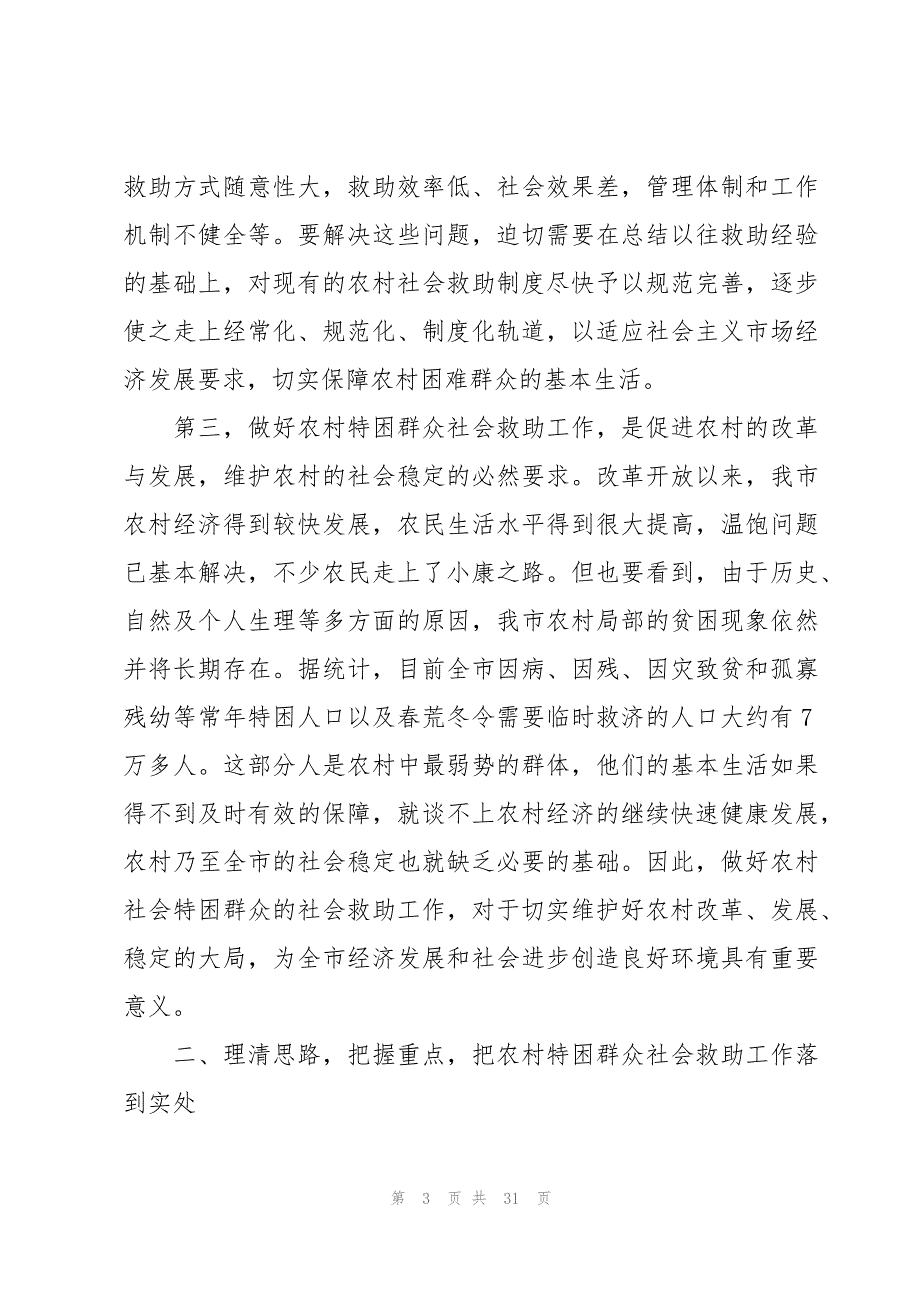 救助方式随意性大，救助效率低、社会效果差，管理体制和工作
机制不健全等。要解决这些问题，迫切需要在总结以往救助经验
的基础上，对现有的农村社会救助制度尽快予以规范完善，逐步
使之走上经常化、规范化、制度化轨道，以适应社会主义市场经
济发展要求，切实保障农村困难群众的基本生活。
第三，做好农村特困群众社会救助工作，是促进农村的改革
与发展，维护农村的社会稳定的必然要求。改革开放以来，我市
农村经济得到较快发展，农民生活水平得到很大提高，温饱问题
已基本解决，不少农民走上了小康之路。但也要看到，由于历史、
自然及个人生理等多方面的原因，我市农村局部的贫困现象依然
并将长期存在。据统计，目前全市因病、因残、因灾致贫和孤寡
残幼等常年特困人口以及春荒冬令需要临时救济的人口大约有7
万多人。这部分人是农村中最弱势的群体，他们的基本生活如果
得不到及时有效的保障，就谈不上农村经济的继续快速健康发展，
农村乃至全市的社会稳定也就缺乏必要的基础。因此，做好农村
社会特困群众的社会救助工作，对于切实维护好农村改革、发展、
稳定的大局，为全市经济发展和社会进步创造良好环境具有重要
意义。
二、理清思路，把握重点，把农村特困群众社会救助工作落
到实处
第 3 页 共 31 页